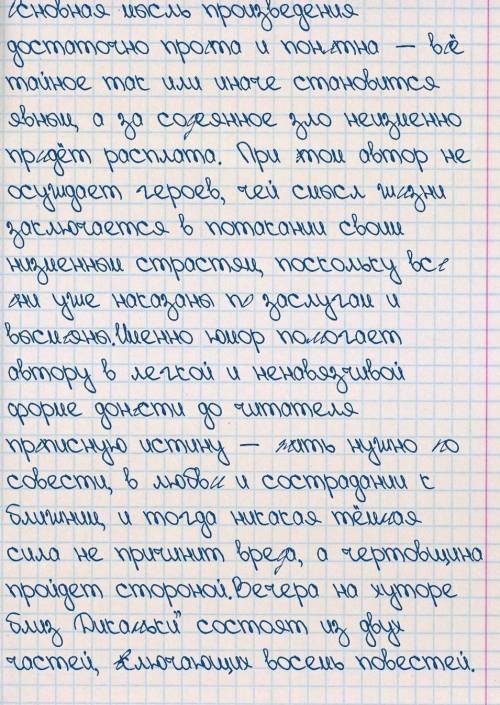 Основная мысль произведения
достаточно проста и понятна – всё
тайное так или иначе становится
явным, а за содеянное зло неизменно
придёт расплата. При этом автор не
осуждает героев, чей смысл жизни
заключается в потакании своим
низменным страстям, поскольку все
они уже наказаны по заслугам и
высмеяны. Именно юмор помогает
автору в легкой и ненавязчивой
форме донести до читателя
прописную истину – жить нужно по
совести, в любви и сострадании к
ближним, и тогда никакая тёмная
сила не причинит вреда, а чертовщина
пройдет стороной. Вечера на хуторе
близ Диканьки" состоят из двух
частей, включающих восемь повестей.